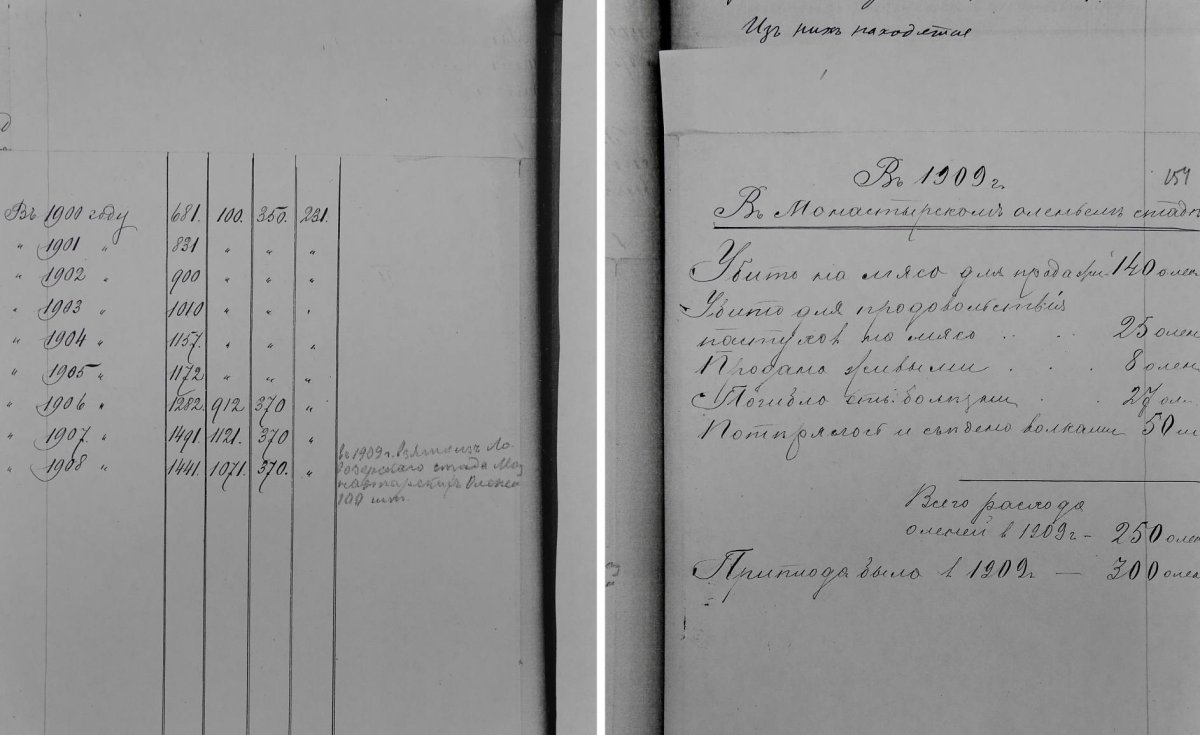 Въ 1900 году 681. 100. 350. 231.
" 1901 " 831 " " "
" 1902 " 900 " " "
" 1903 " 1010 " " "
" 1904 " 1157. " " "
" 1905 " 1172 " " "
" 1906 " 1282. 912 370 "
" 1907. " 1491. 1121. 370 "
" 1908 " 1441. 1071. 370. "
въ 1909 г. взято изъ Ло-
возерскаго стада Мо
Оленей
100 шт.
Изъ нихъ находятся
Въ 1909 г.
154
Въ Монастырскомъ оленьемъ стадѣ
Убито на мясо для продажи 140 олен
Убито для продовольствія
пастухов на мясо . . . 25 олен
Продано живыми . . . 8 олен
Погибло отъ болѣзни . 27 ол.
Потерялось и съѣдено волками 50
Всего расхода
оленей в 1909 г – 250 олен
Приплода было в 1909 г — 300 олен